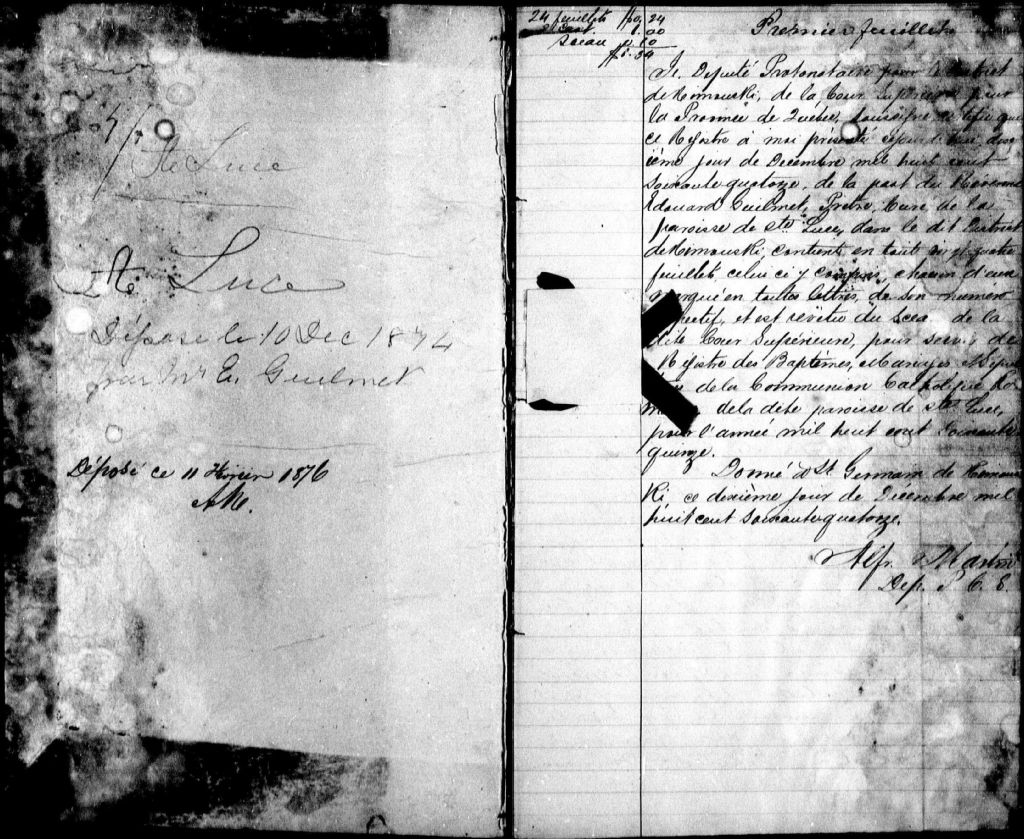 Ste Luce
Ste Luce
Déposé le 10 Dec 1874
par Mr E. Guilmet
Déposé ce 11 Février 1876
AM.
24 feuillets $0.24
1.00
Sceau 0.10
$1.34
Premier feuillet
Je Député Protonotaire pour le District
de Rimouski, de la Cour Supérieure pour
la Province de Québec, soussigné certifie que
ce Registre à moi présenté aujourd'hui dix
ième jour de Decembre mil huit cent
soixante quatorze, de la part du Révérend
Edouard Guilmet, Prêtre, Curé de la
paroisse de Ste Luce, dans le dit District
de Rimouski, contient en tout vingt quatre
feuillets celui ci y compris, chacun d'eux
marqué en toutes lettres, de son numéro
respectif, et est revêtu du Sceau de la
dite Cour Supérieure, pour servir de
Registre des Baptêmes, Mariages et Sépul
tures de la Communion Catholique Ro
maine de la dite paroisse de Ste Luce,
pour l'année mil huit cent soixante
quinze.
Donné à St Germain de Rimous
Ki ce dixième jour de Decembre mil
huit cent soixante quatorze.
Alfr. Martin
Dep. P. C. S.